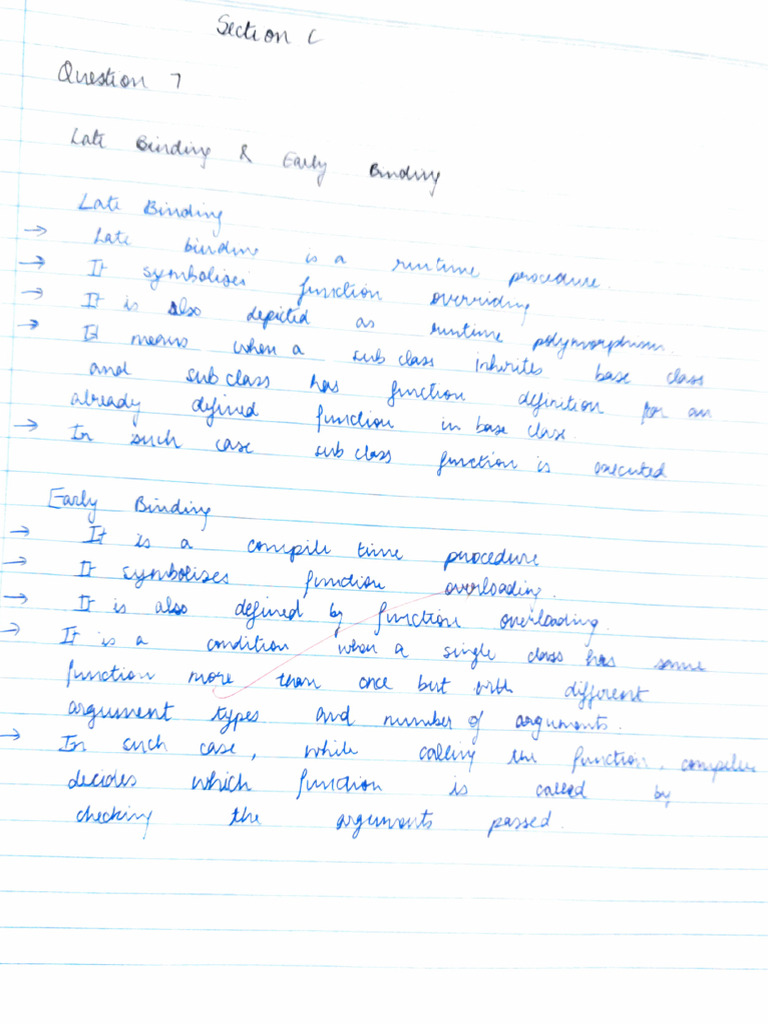 Section C
Question 7
Late Binding & Early Binding
Late Binding
→ Late binding is a runtime procedure.
→ It symbolises function overriding
→ It is also depicted as runtime polymorphism.
→ It means when a sub class inherites base class
and sub class has function definition for an
already defined function in base class.
→ In such case sub class function is executed
Early Binding
→ It is a compile time procedure
→ It symbolises function overloading.
→ It is also defined by function overloading.
→ It is a condition when a single class has same
function more than once but with different
argument types and number of arguments.
→ In such case, while calling the function, compiler
decides which function is called by
checking the arguments passed.